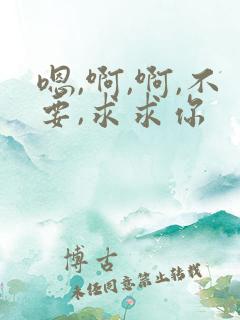 嗯,啊,啊,不
要,求求你
博古
未经同意禁止转载